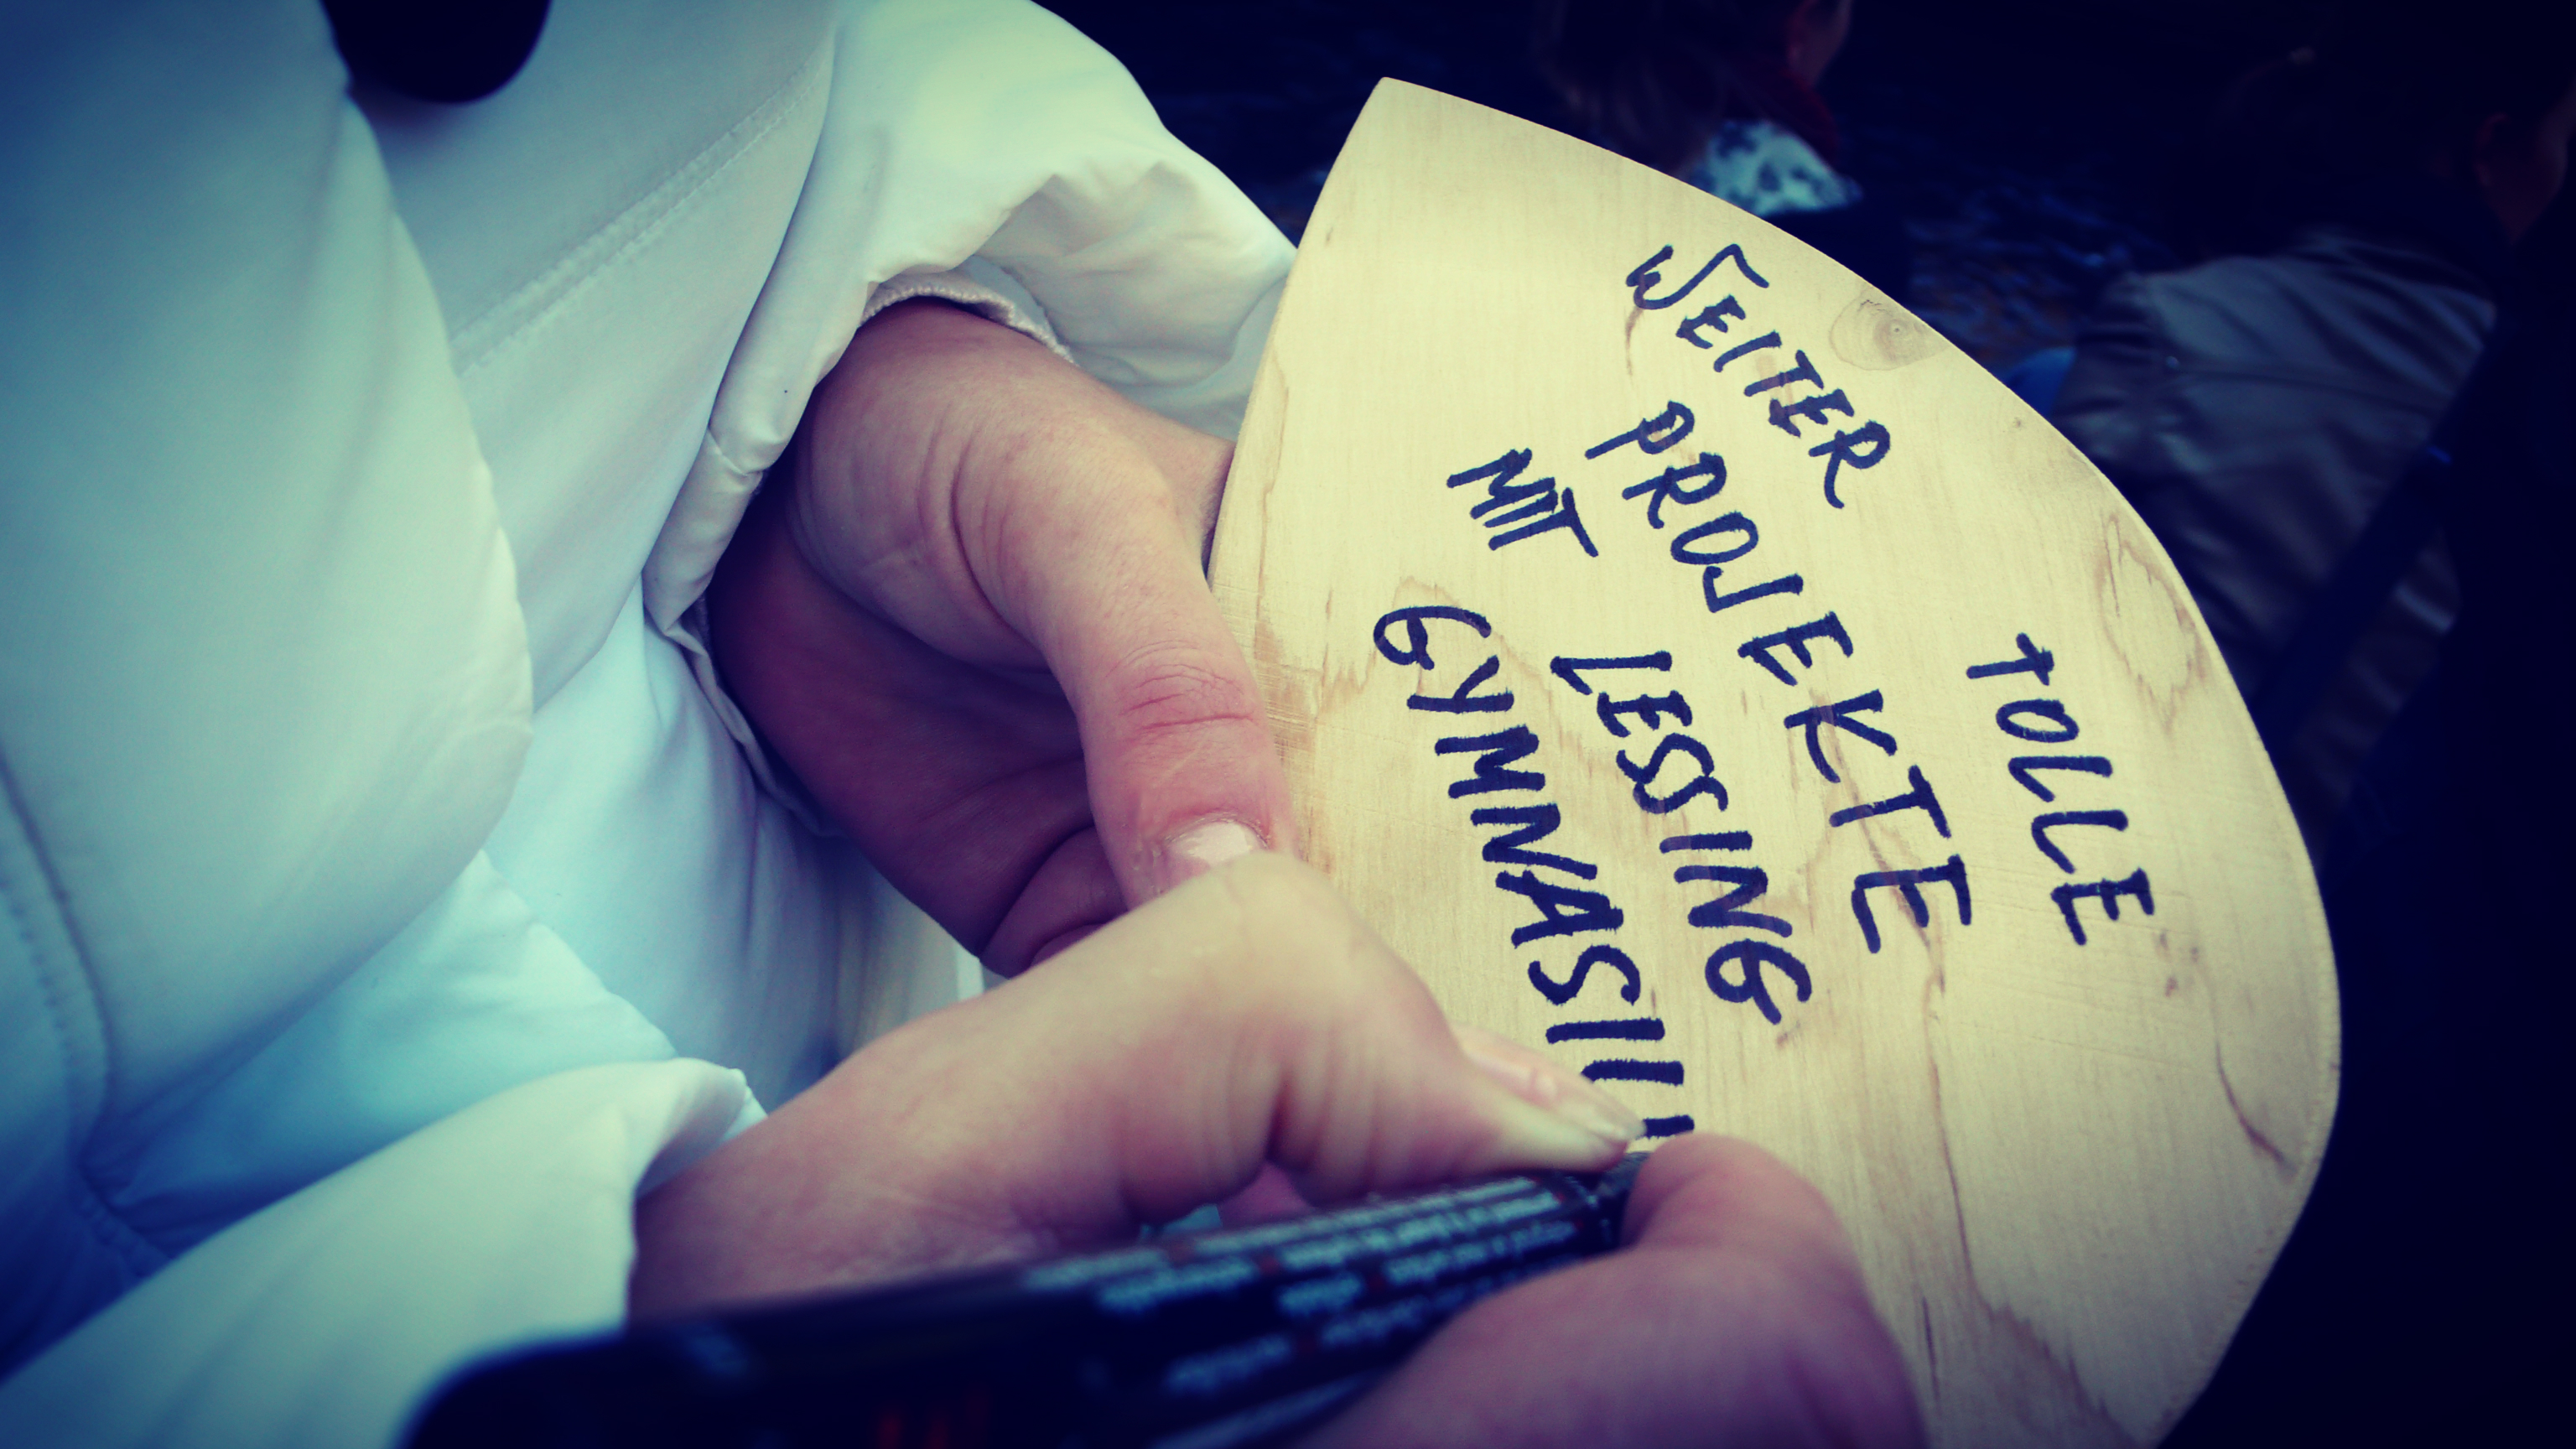 WEITER TOLLE
PROJEKTE
MIT LESSING
GYMNASIU